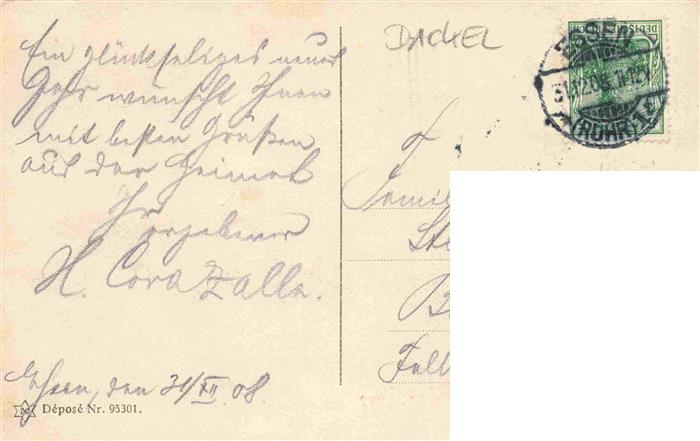 Ein glückseliges neues
Jahr wünscht Ihnen
mit besten Grüßen
aus der Heimat
Ihr
ergebener
H. Corazalla.
Essen, den 31/XII 08.
Déposé Nr. 95301.
DACKEL
ESSEN
31.12.08. 11-12V
(RUHR) 1
F
Famil